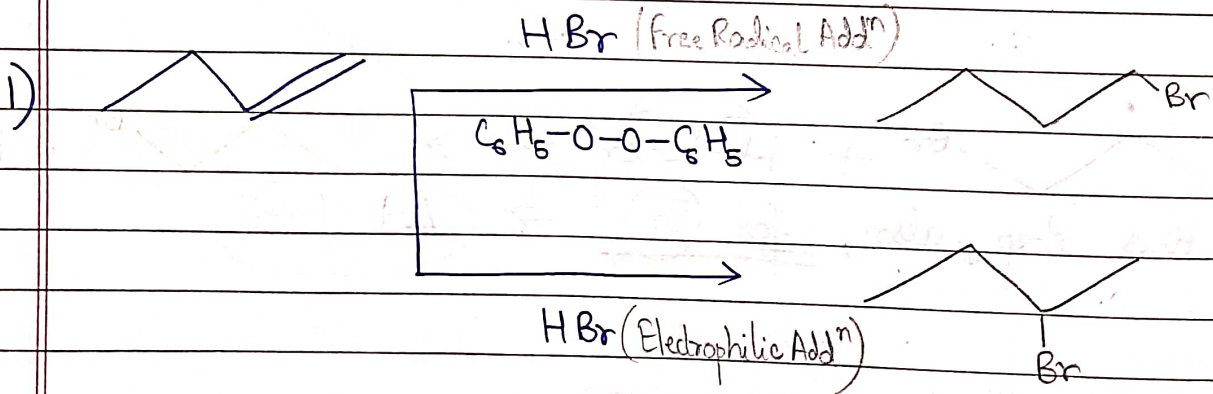 HBr (Free Radical Addⁿ)
1)
Br
C₆H₅-O-O-C₆H₅
HBr (Electrophilic Addⁿ)
Br